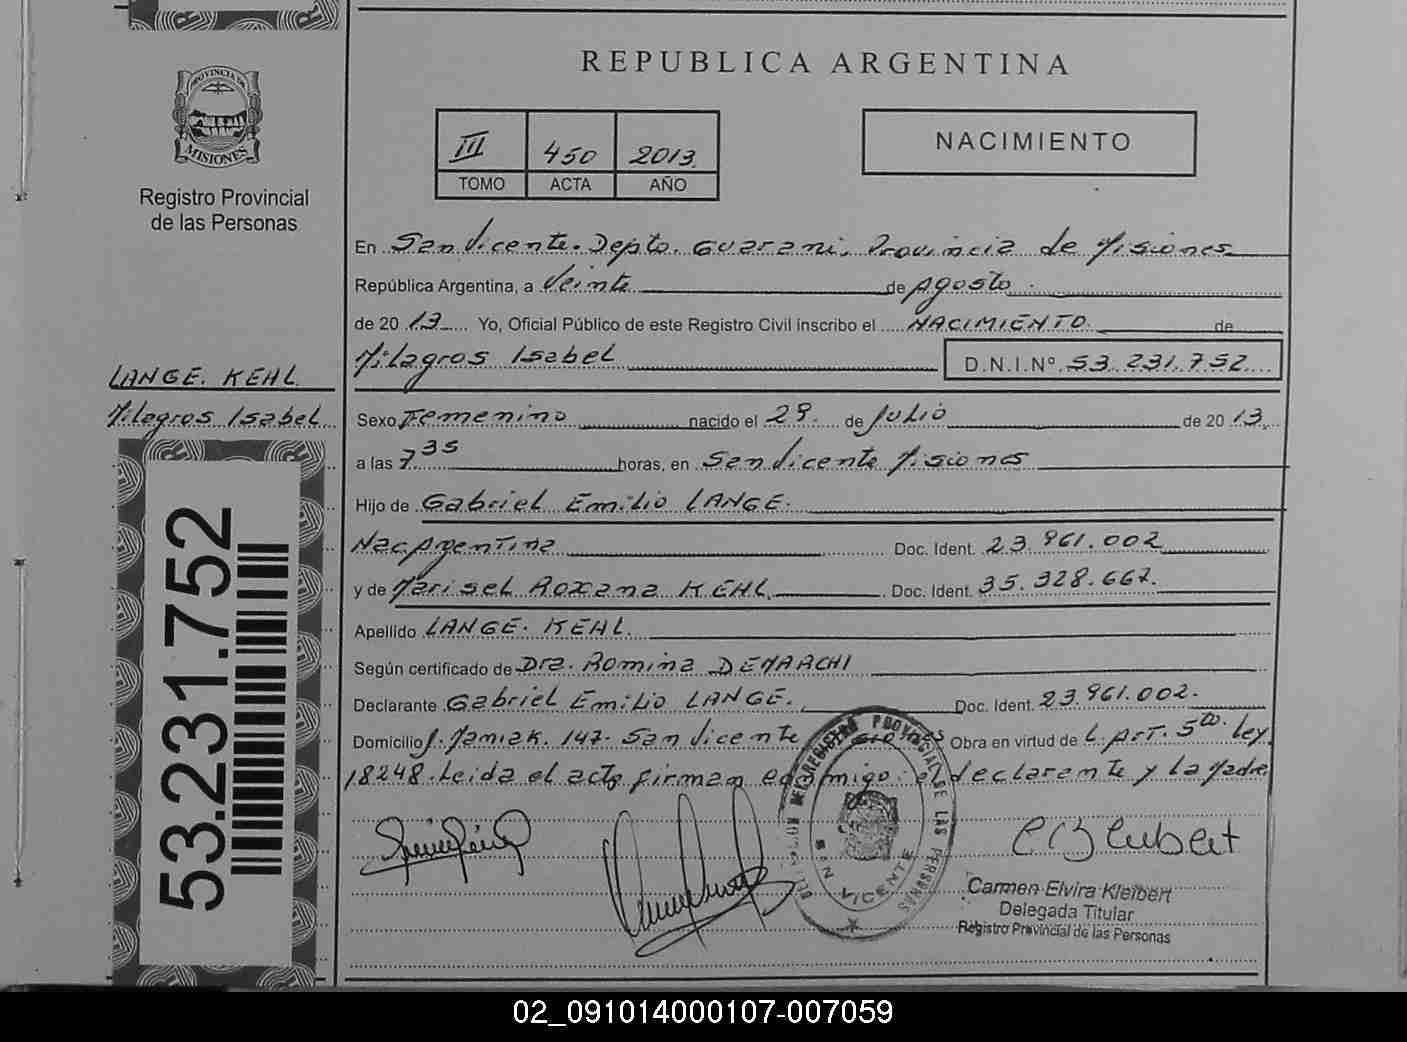 REPUBLICA ARGENTINA
PROVINCIA DE
MISIONES
Registro Provincial
de las Personas
III 450 2013.
TOMO ACTA AÑO
NACIMIENTO
En San Vicente. Depto. Guarani, Provincia de Misiones
República Argentina, a Veinte de Agosto.
de 20 13 Yo, Oficial Público de este Registro Civil inscribo el NACIMIENTO de
Milagros Isabel D.N.I.Nº 53.231.752
LANGE. KEHL
Milagros Isabel
53.231.752
Sexo Femenino nacido el 29. de Julio de 20 13.
a las 7.35 horas, en San Vicente Misiones
Hijo de Gabriel Emilio LANGE.
Nac Argentina Doc. Ident. 23.961.002
y de Marisel Roxana KEHL. Doc. Ident. 35.328.667.
Apellido LANGE. KEHL.
Según certificado de Dra. Romina DEMARCHI
Declarante Gabriel Emilio LANGE. Doc. Ident. 23.961.002.
Domicilio J. 147. San Vicente Obra en virtud de L. Art. 5to. Ley
18248. Leida el acta firman conmigo: el declarante y la Madre
SAN VICENTE
Carmen Elvira Kleibert
Delegada Titular
Registro Provincial de las Personas
02_091014000107-007059